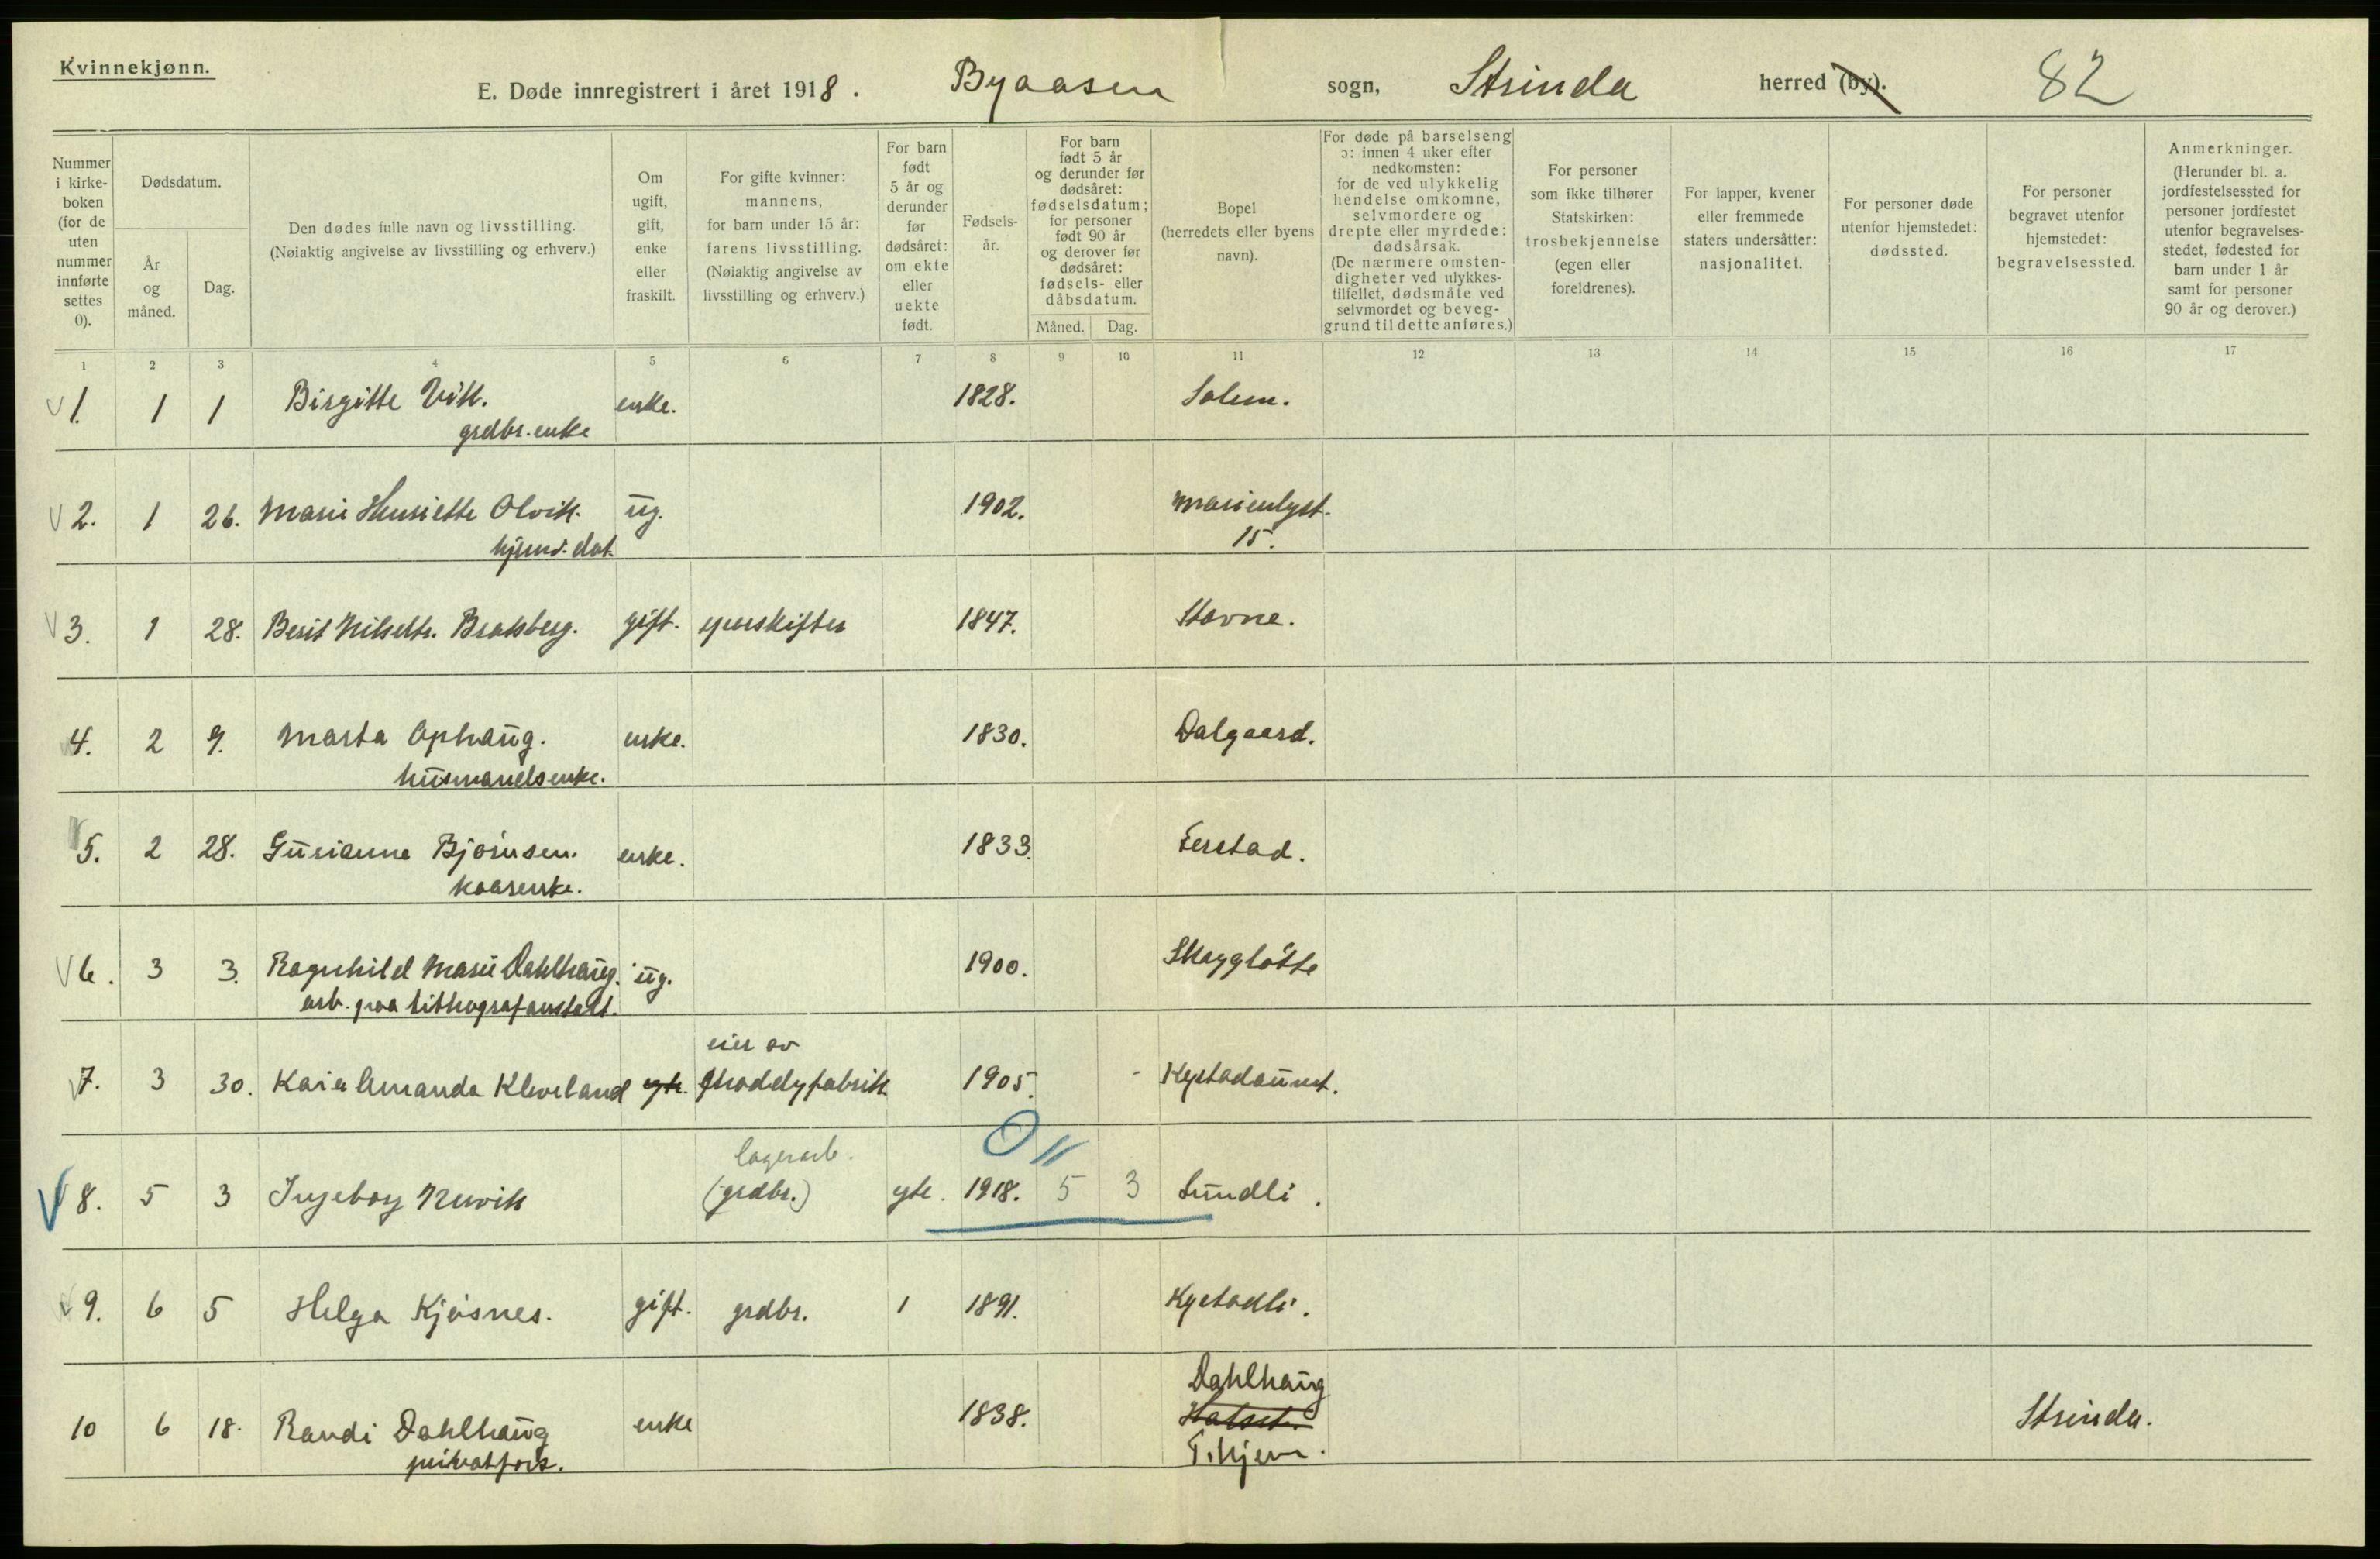 Kvinnekjønn.
E. Døde innregistrert i året 1918. Byaasen sogn, Strinda herred (by). 82
Nummer i kirke-boken (for de uten nummer innførte settes 0).
Dødsdatum.
År og måned.
Dag.
Den dødes fulle navn og livsstilling.
(Nøiaktig angivelse av livsstilling og erhverv.)
Om ugift, gift, enke eller fraskilt.
For gifte kvinner: mannens, for barn under 15 år: farens livsstilling. (Nøiaktig angivelse av livsstilling og erhverv.)
For barn født 5 år og derunder før dødsåret: om ekte eller uekte født.
Fødsels-år.
For barn født 5 år og derunder før dødsåret: fødselsdatum; for personer født 90 år og derover før dødsåret: fødsels- eller dåbsdatum.
Måned. Dag.
Bopel (herredets eller byens navn).
For døde på barselseng ɔ: innen 4 uker efter nedkomsten: for de ved ulykkelig hendelse omkomne, selvmordere og drepte eller myrdede: dødsårsak. (De nærmere omsten-digheter ved ulykkes-tilfellet, dødsmåte ved selvmordet og beveg-grund til dette anføres.)
For personer som ikke tilhører Statskirken: trosbekjennelse (egen eller foreldrenes).
For lapper, kvener eller fremmede staters undersåtter: nasjonalitet.
For personer døde utenfor hjemstedet: dødssted.
For personer begravet utenfor hjemstedet: begravelsessted.
Anmerkninger. (Herunder bl. a. jordfestelsessted for personer jordfestet utenfor begravelses-stedet, fødested for barn under 1 år samt for personer 90 år og derover.)
1 2 3 4 5 6 7 8 9 10 11 12 13 14 15 16 17
1. 1 1 Birgitte Vik. enke. 1828. Solem.
grdbr. enke
2. 1 26. Marie Henriette Olvik. ug. 1902. Marienlyst.
hjemv. dat. 15.
3. 1 28. Berit Nilsdtr. Bratsberg. gift. sporskifter 1847. Stavne.
4. 2 9. Marta Ophaug. enke. 1830. Dalgaard.
husmandsenke.
5. 2 28. Gurianne Bjørnsen. enke. 1833. Ferstad.
kaarenke.
6. 3 3. Ragnhild Marie Dahlhaug. ug. 1900. Skyggløtte
arb. paa lithografanstalt.
eier av
7. 3 30. Kaia Amanda Kleveland Shoddyfabrik 1905. Kystadaunet.
lagerarb.
8. 5 3 Ingeborg (grdbr.) gte. 1918. 5 3 Sundli.
9. 6 5 Helga Kjøsnes. gift. grdbr. 1 1891. Kystadli.
Dahlhaug
10 6 18. Randi Dahlhaug enke 1838. Strinda.
privatfors. T.hjem.